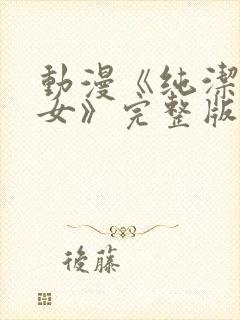 動漫《純潔
女》完整版
後藤